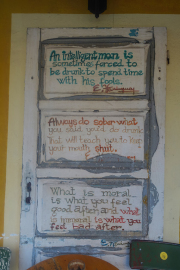 An intelligent man is
sometimes forced to
be drunk to spend time
with his fools.
E. Hemingway
Always do sober what
you said you'd do drunk
That will teach you to keep
your mouth shut.
What is moral
is what you feel
good after and what
is immoral is what you
feel bad after.